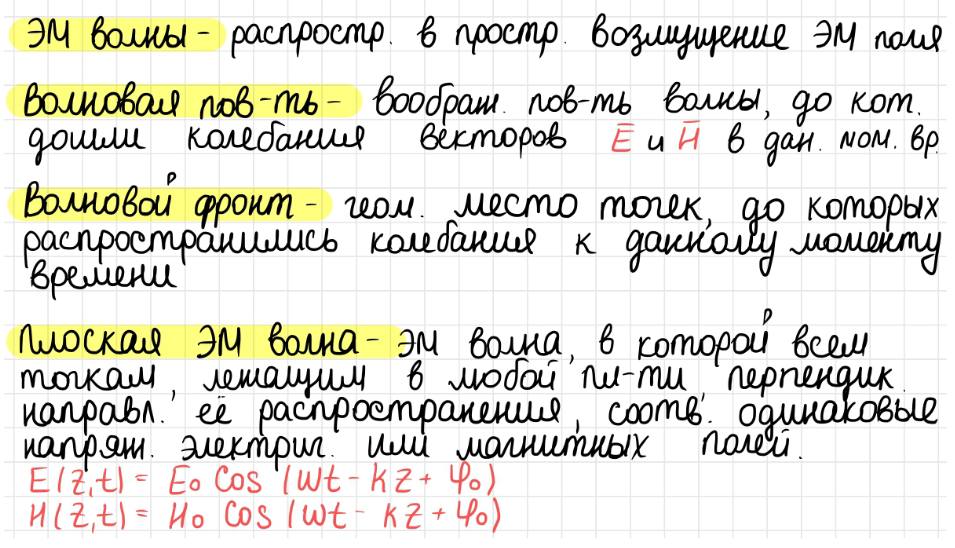 ЭМ волны - распростр. в простр. возмущение ЭМ поля
Волновая пов-ть - воображ. пов-ть волны, до кот.
дошли колебания векторов E̅ и H̅ в дан. мом. вр.
Волновой фронт - геом. место точек, до которых
распространились колебания к данному моменту
времени
Плоская ЭМ волна - ЭМ волна, в которой всем
точкам, лежащим в любой пл-ти, перпендик.
направл. её распространения, соотв. одинаковые
напряж. электрич. или магнитных полей.
E(z,t) = E₀ cos (ωt - kz + φ₀)
H(z,t) = H₀ cos (ωt - kz + φ₀)